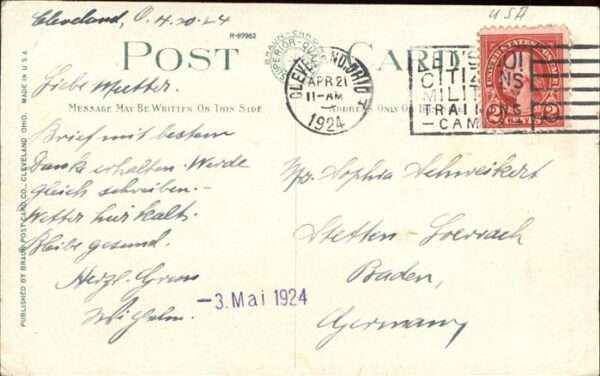 Cleveland, O. 4.20.24
R-87962
USA
POST CARD
BRAUN-CHROM
SUPERIOR-QUALITY
CLEVELAND, OHIO
APR 21
11-AM
1924
CITIZENS
MILIT
TRAIN
—CAM
UNITED STATES
2 CENTS 2
MESSAGE MAY BE WRITTEN ON THIS SIDE
ADDRESS ONLY ON
Liebe Mutter.
Brief mit bestem
Dank erhalten. Werde
gleich schreiben.-
Wetter hier kalt.
Bleibe gesund.
Herzl. Gruss
Wilhelm.
Mrs. Sophia Schweikert
Stetten Loerrach
Baden,
Germany
-3. Mai 1924
PUBLISHED BY BRAUN POST CARD CO., CLEVELAND OHIO. MADE IN U S A